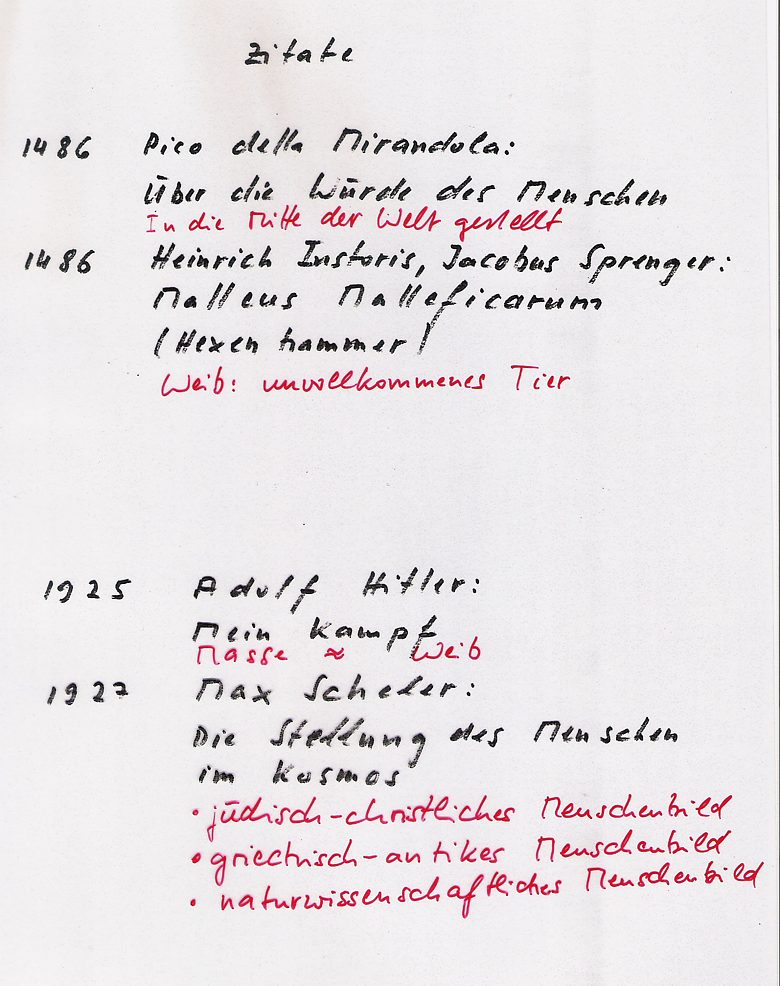 Zitate
1486 Pico della Mirandola:
Über die Würde des Menschen
In die Mitte der Welt gestellt
1486 Heinrich Instoris, Jacobus Sprenger:
Malleus Malleficarum
(Hexenhammer)
Weib: unvollkommenes Tier
1925 Adolf Hitler:
Mein Kampf
Masse ≈ Weib
1927 Max Scheler:
Die Stellung des Menschen
im Kosmos
• jüdisch-christliches Menschenbild
• griechisch-antikes Menschenbild
• naturwissenschaftliches Menschenbild